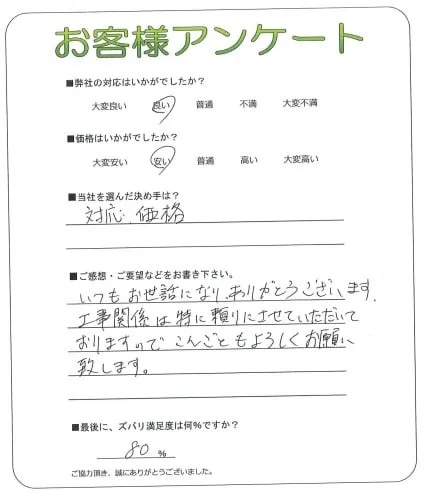 お客様アンケート
■弊社の対応はいかがでしたか?
大変良い 良い 普通 不満 大変不満
■価格はいかがでしたか?
大変安い 安い 普通 高い 大変高い
■当社を選んだ決め手は?
対応、価格
■ご感想・ご要望などをお書き下さい。
いつもお世話になり、ありがとうございます。
工事関係は特に頼りにさせていただいて
おりますので こんごともよろしくお願い
致します。
■最後に、ズバリ満足度は何%ですか?
80 %
ご協力頂き、誠にありがとうございました。